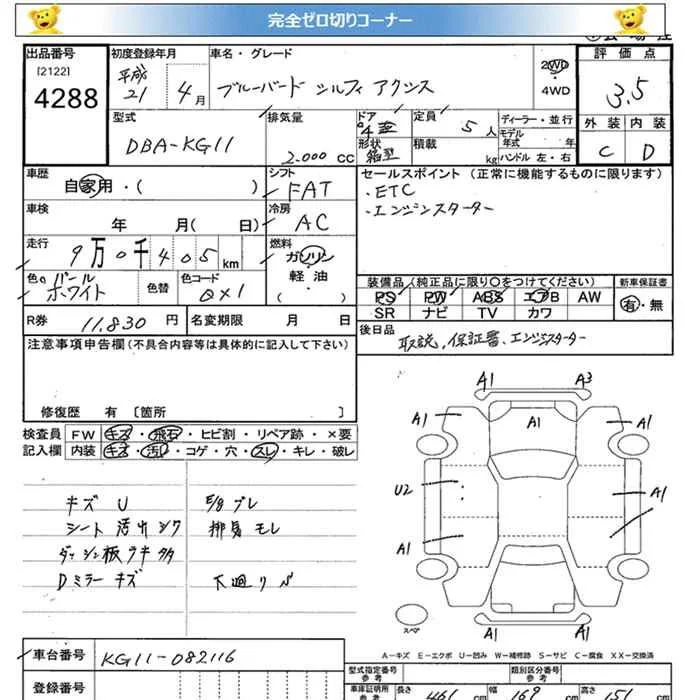 完全ゼロ切りコーナー
出品番号 初度登録年月 車名・グレード 評価点
[2122] 平成 ブルーバード シルフィ アクシス 2WD 3.5
4288 21 4月 ・4WD
型式 排気量 ドア 定員 ディーラー・並行 外装 内装
DBA-KG11 2.000 CC 4 5人 モデル年式 年 C D
形状 箱型 積載 kg ハンドル 左・右
車歴 シフト セールスポイント(正常に機能するものに限ります)
自家用・( ) FAT ・ETC
車検 冷房 ・エンジンスターター
年 月( 日) AC
走行 燃料
9万0千405km ガソリン
軽・油
( )
色 パールホワイト 色替 色コード QX1
装備品(純正品に限り○をつけてください) 新車保証書
PS PW ABS エアB AW 有・無
SR ナビ TV カワ
R券 11.830円 名変期限 月 日 後日品
取説,保証書、エンジンスターター
注意事項申告欄(不具合内容等は具体的に記入して下さい)
修復歴 有〔箇所 〕
検査員 FW キズ・飛石・ヒビ割・リペア跡・×要
記入欄 内装 キズ・汚レ・コゲ・穴・スレ・キレ・破レ
A1 A3
A1 A1 A1
U2 A1
A1
A1 A1
スペア
キズ U E/g ブレ
シート 汚レ シワ 排気 モレ
ダッシュ板 キ 多
Dミラー キズ 下廻り
A-キズ E-エクボ U-凹み W-補修跡 S-サビ C-腐食 XX-交換済
車台番号 KG11-082116
型式指定番号 参考 類別区分番号 参考
登録番号 車庫証明用 参考 長さ 461 cm 幅 169 cm 高さ 151 cm